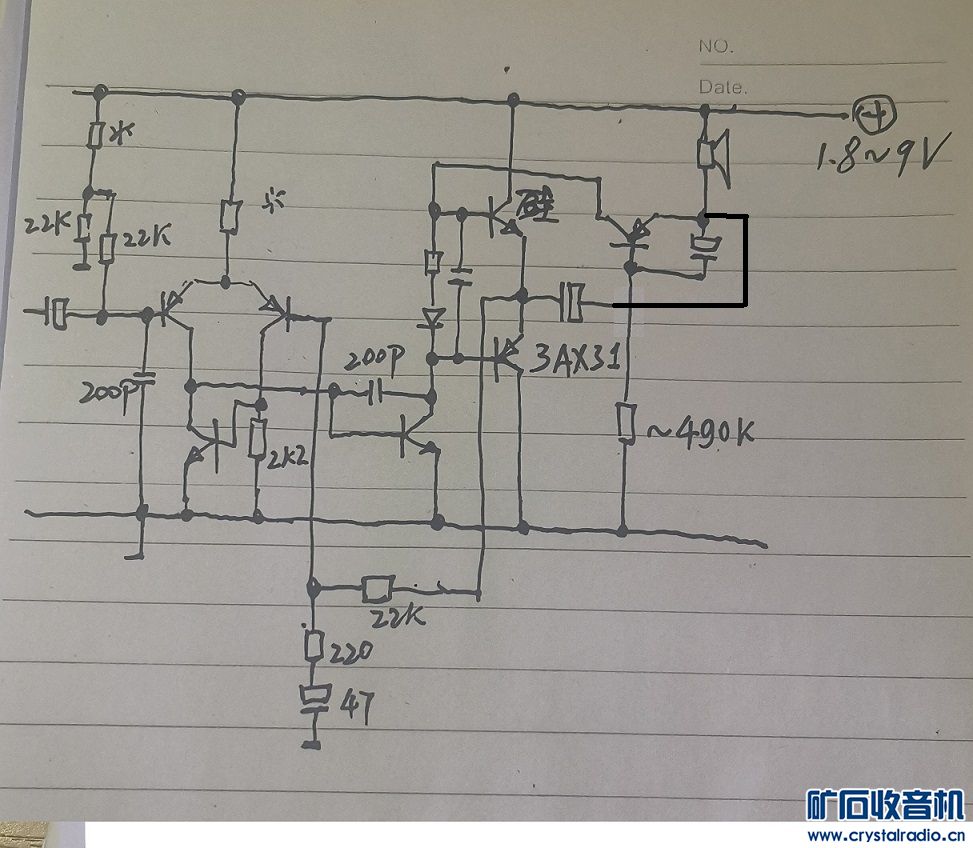 NO.
Date.
1.8~9V
22K
22K
硅
200P
200P
3AX31
2K2
~490K
22K
220
47
矿石收音机
www.crystalradio.cn